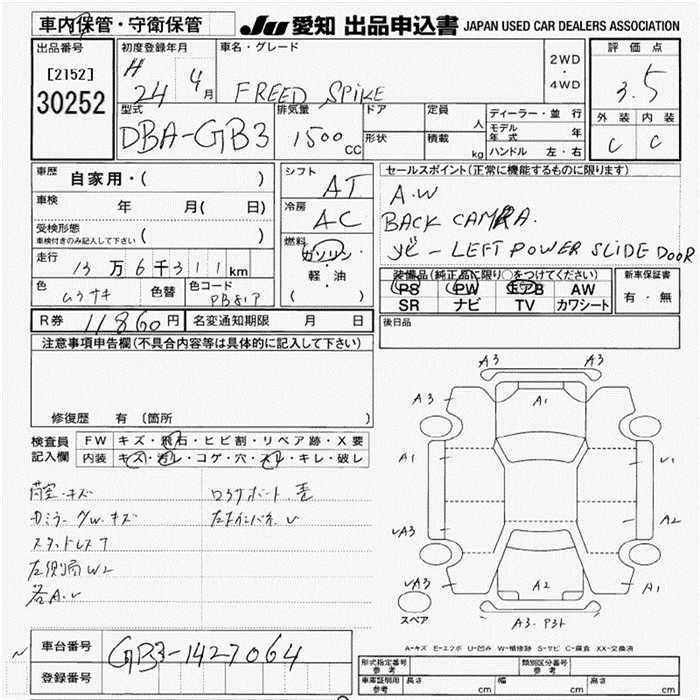 車内保管・守衛保管
JU 愛知 出品申込書 JAPAN USED CAR DEALERS ASSOCIATION
出品番号
[2152]
30252
初度登録年月
H 24 4月
車名・グレード
FREED SPIKE
2WD
・
4WD
評価点
3.5
外装 内装
C C
型式
DBA-GB3
排気量
1500 CC
ドア
形状
定員 人
積載 kg
ディーラー・並行
モデル年式 年
ハンドル 左・右
車歴 自家用・( )
車検 年 月( 日)
受検形態
車検付きのみ記入して下さい ( )
走行 13万6千311km
色
ムラサキ
色替
色コード
PB81P
シフト AT
冷房 AC
燃料
ガソリン
・
軽・油
( )
セールスポイント(正常に機能するものに限ります)
A.W
BACK CAMRA.
ナビ - LEFT POWER SLIDE DOOR
装備品(純正品に限り○をつけてください)
PS PW エアB AW
SR ナビ TV カワシート
新車保証書
有・無
R券 11860円 名変通知期限 月 日
後日品
注意事項申告欄(不具合内容等は具体的に記入して下さい)
修復歴 有 〔箇所 〕
検査員記入欄
FW キズ・飛石・ヒビ割・リペア跡・X要
内装 キズ・汚レ・コゲ・穴・スレ・キレ・破レ
荷室・キズ
カミラー グW.キズ
スタッドレス7
左側面W2
各A.U
A3 A3
A3 A1 A3
A1 U1
UA3 A2
UA3 A2 A1
スペア
A3・P31
A-キズ E-エクボ U-凹み W-補修跡 S-サビ C-腐食 XX-交換済
車台番号 GB3-1427064
登録番号
形式指定番号 参考
類別区分番号 参考
車庫証明用 参考
長さ cm 幅 cm 高さ cm